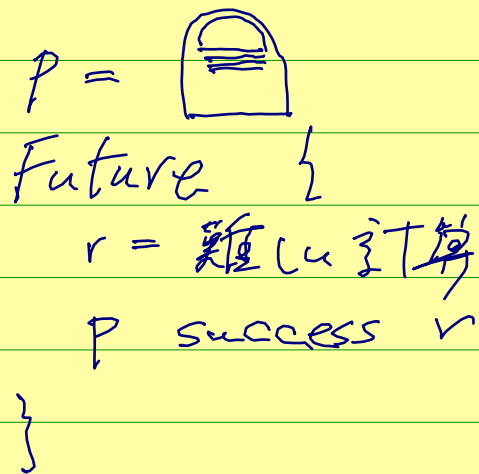 p =
Future {
r = 難しい計算
p success r
}